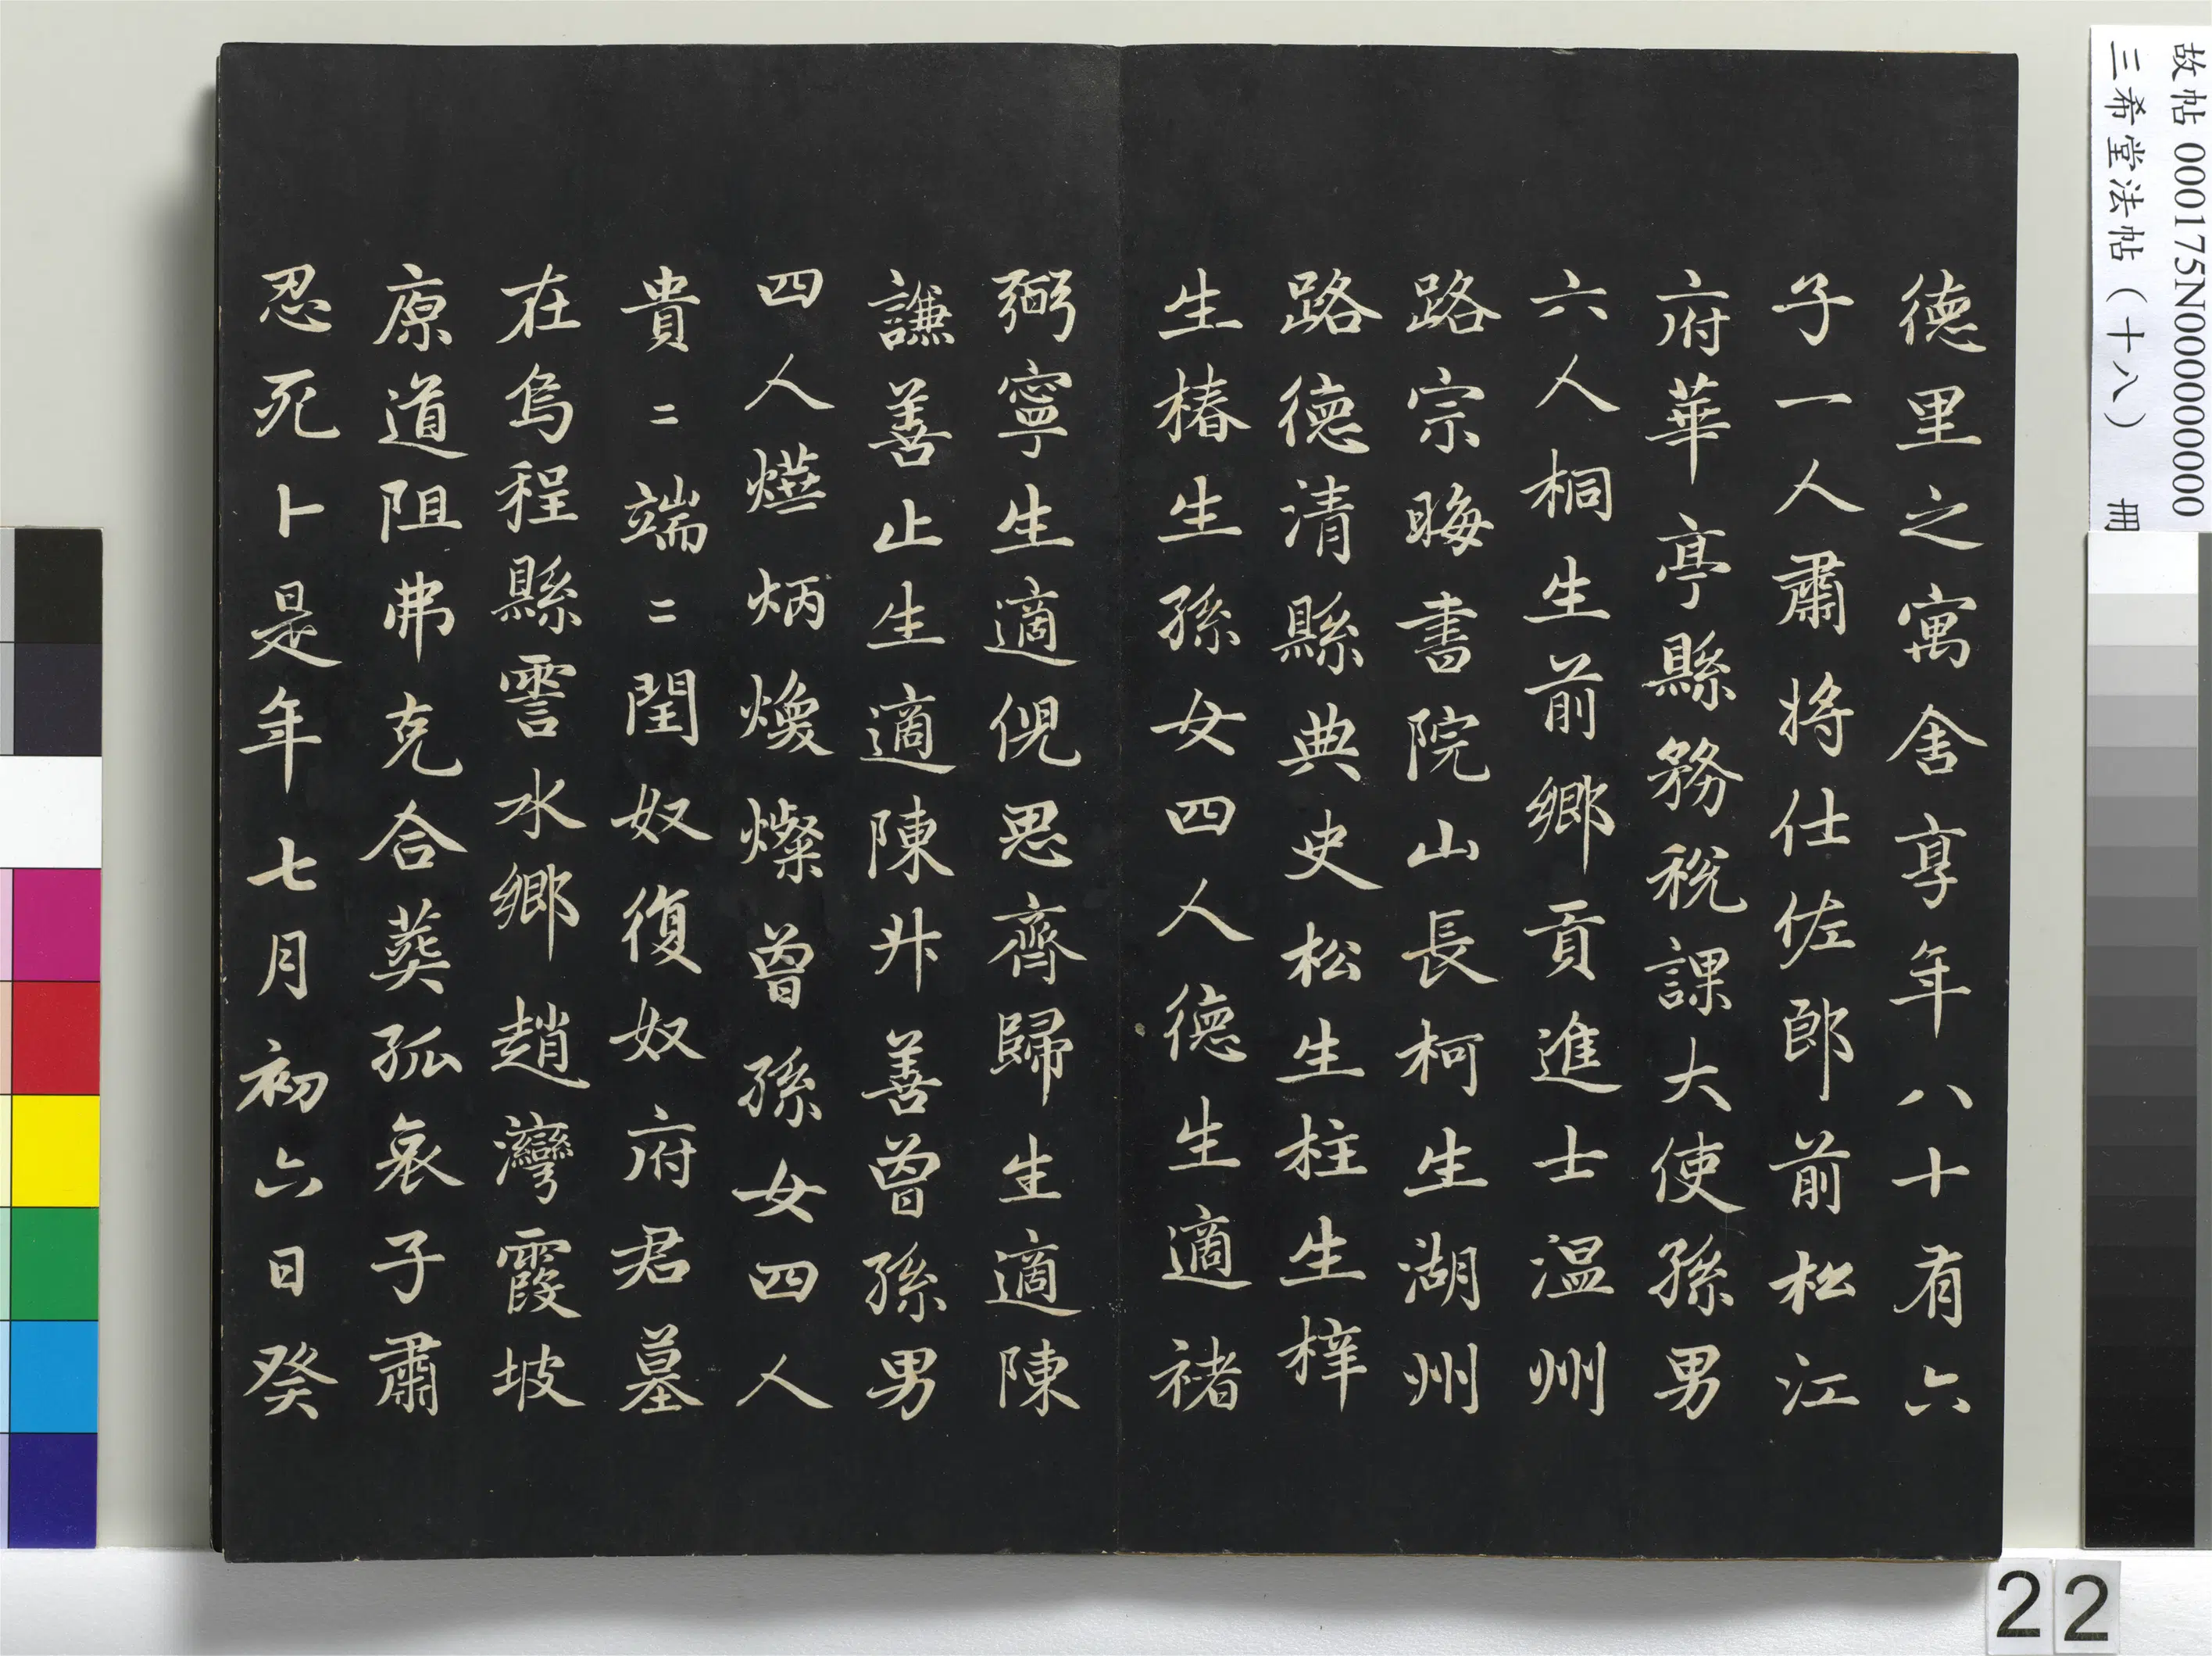 德里之寓舍享年八十有六
子一人肅將仕佐郎前松江
府華亭縣務稅課大使孫男
六人桐生前鄉貢進士溫州
路宗晦書院山長柯生湖州
路德清縣典史松生柱生梓
生椿生孫女四人德生適褚
弼寧生適倪思齊歸生適陳
謙善止生適陳升善曾孫男
四人爗炳煥燦曾孫女四人
貴二端二閏奴復奴府君墓
在烏程縣霅水鄉趙灣霞坡
原道阻弗克合葬孤哀子肅
忍死卜是年七月初六日癸
故帖 000175N000000000
三希堂法帖（十八） 冊
22